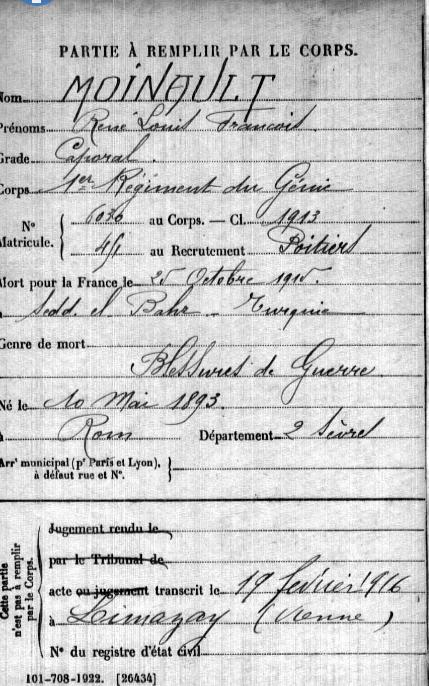 PARTIE À REMPLIR PAR LE CORPS.
Nom MOINAULT
Prénoms René Louis Francois
Grade Caporal.
Corps 1er Régiment du Génie
N° Matricule. { 6036 au Corps. — Cl. 1913
au Recrutement Poitiers
Mort pour la France le 25 Octobre 1915.
à Sedd. el Bahr - Turquie
Genre de mort
Blessures de Guerre
Né le 10 Mai 1893.
à Rom Département 2 Sèvres
Arrt municipal (pr Paris et Lyon), à défaut rue et N°. }
Cette partie n'est pas à remplir par le Corps.
Jugement rendu le
par le Tribunal de
acte ou jugement transcrit le 19 février 1916
à Limazay (Vienne)
N° du registre d'état civil
101-708-1922. [26434]